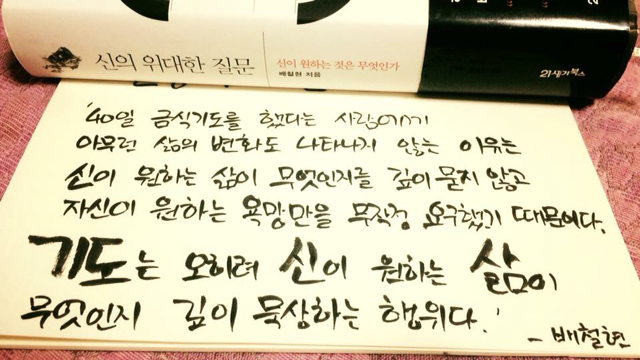 신의 위대한 질문
신이 원하는 것은 무엇인가
배철현 지음
21세기북스
'40일 금식기도를 했다는 사람에게
아무런 삶의 변화도 나타나지 않는 이유는
신이 원하는 삶이 무엇인지를 깊이 묻지 않고
자신이 원하는 욕망만을 무작정 요구했기 때문이다.
기도는 오히려 신이 원하는 삶이
무엇인지 깊이 묵상하는 행위다.'
- 배철현